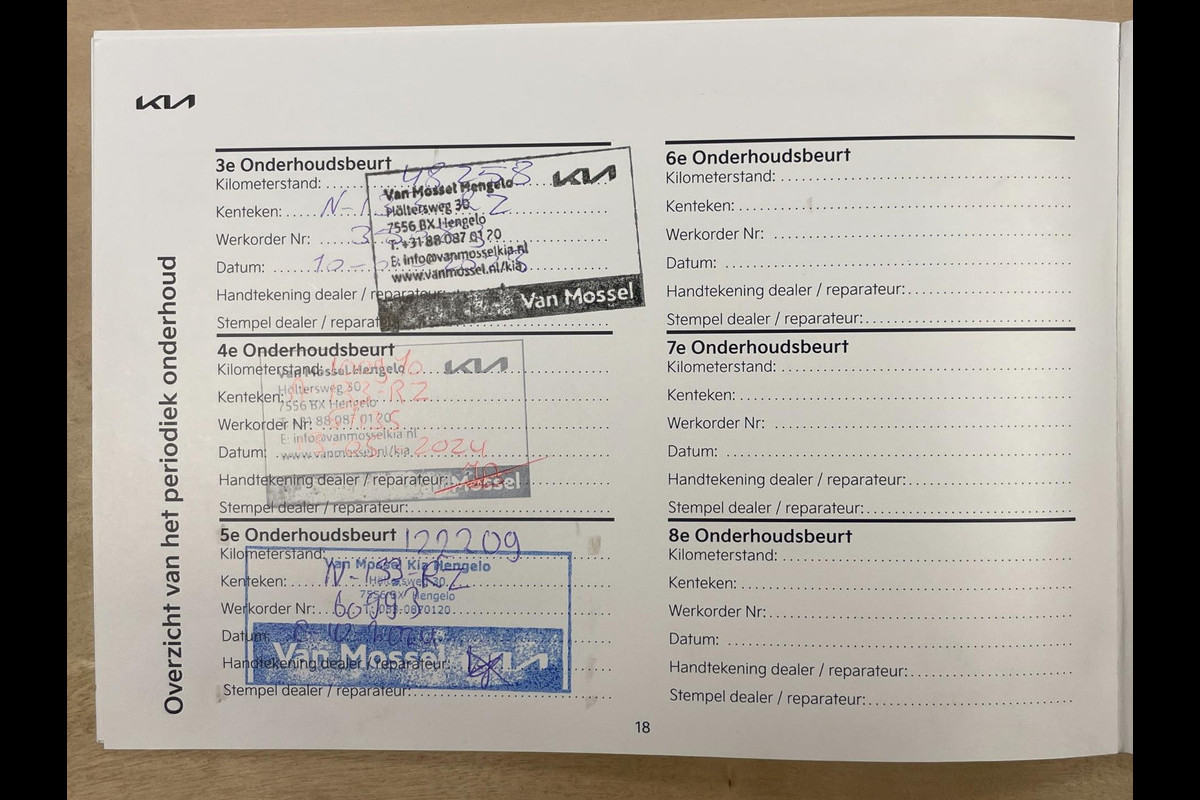 KIA
Overzicht van het periodiek onderhoud
3e Onderhoudsbeurt
Kilometerstand: 48258
Kenteken:
Werkorder Nr:
Datum:
Handtekening dealer / reparateur:
Stempel dealer / reparateur
Van Mossel Hengelo
KIA
Höltersweg 30
7556 BX Hengelo
T: +31 88 087 01 20
E: info@vanmosselkia.nl
www.vanmossel.nl/kia
Van Mossel
4e Onderhoudsbeurt
Kilometerstand:
Kenteken:
Werkorder Nr:
Datum: 2024
Handtekening dealer / reparateur:
Stempel dealer / reparateur:
Van Mossel Hengelo
KIA
Höltersweg 30
7556 BX Hengelo
T: +31 88 087 01 20
E: info@vanmosselkia.nl
www.vanmossel.nl/kia
Mossel
5e Onderhoudsbeurt
Kilometerstand: 122209
Kenteken: N-193-RZ
Werkorder Nr:
Datum:
Handtekening dealer / reparateur:
Stempel dealer / reparateur:
Van Mossel Kia Hengelo
Höltersweg 30
7556 BX Hengelo
T: 088-0870120
Van Mossel KIA
6e Onderhoudsbeurt
Kilometerstand:
Kenteken:
Werkorder Nr:
Datum:
Handtekening dealer / reparateur:
Stempel dealer / reparateur:
7e Onderhoudsbeurt
Kilometerstand:
Kenteken:
Werkorder Nr:
Datum:
Handtekening dealer / reparateur:
Stempel dealer / reparateur:
8e Onderhoudsbeurt
Kilometerstand:
Kenteken:
Werkorder Nr:
Datum:
Handtekening dealer / reparateur:
Stempel dealer / reparateur:
18